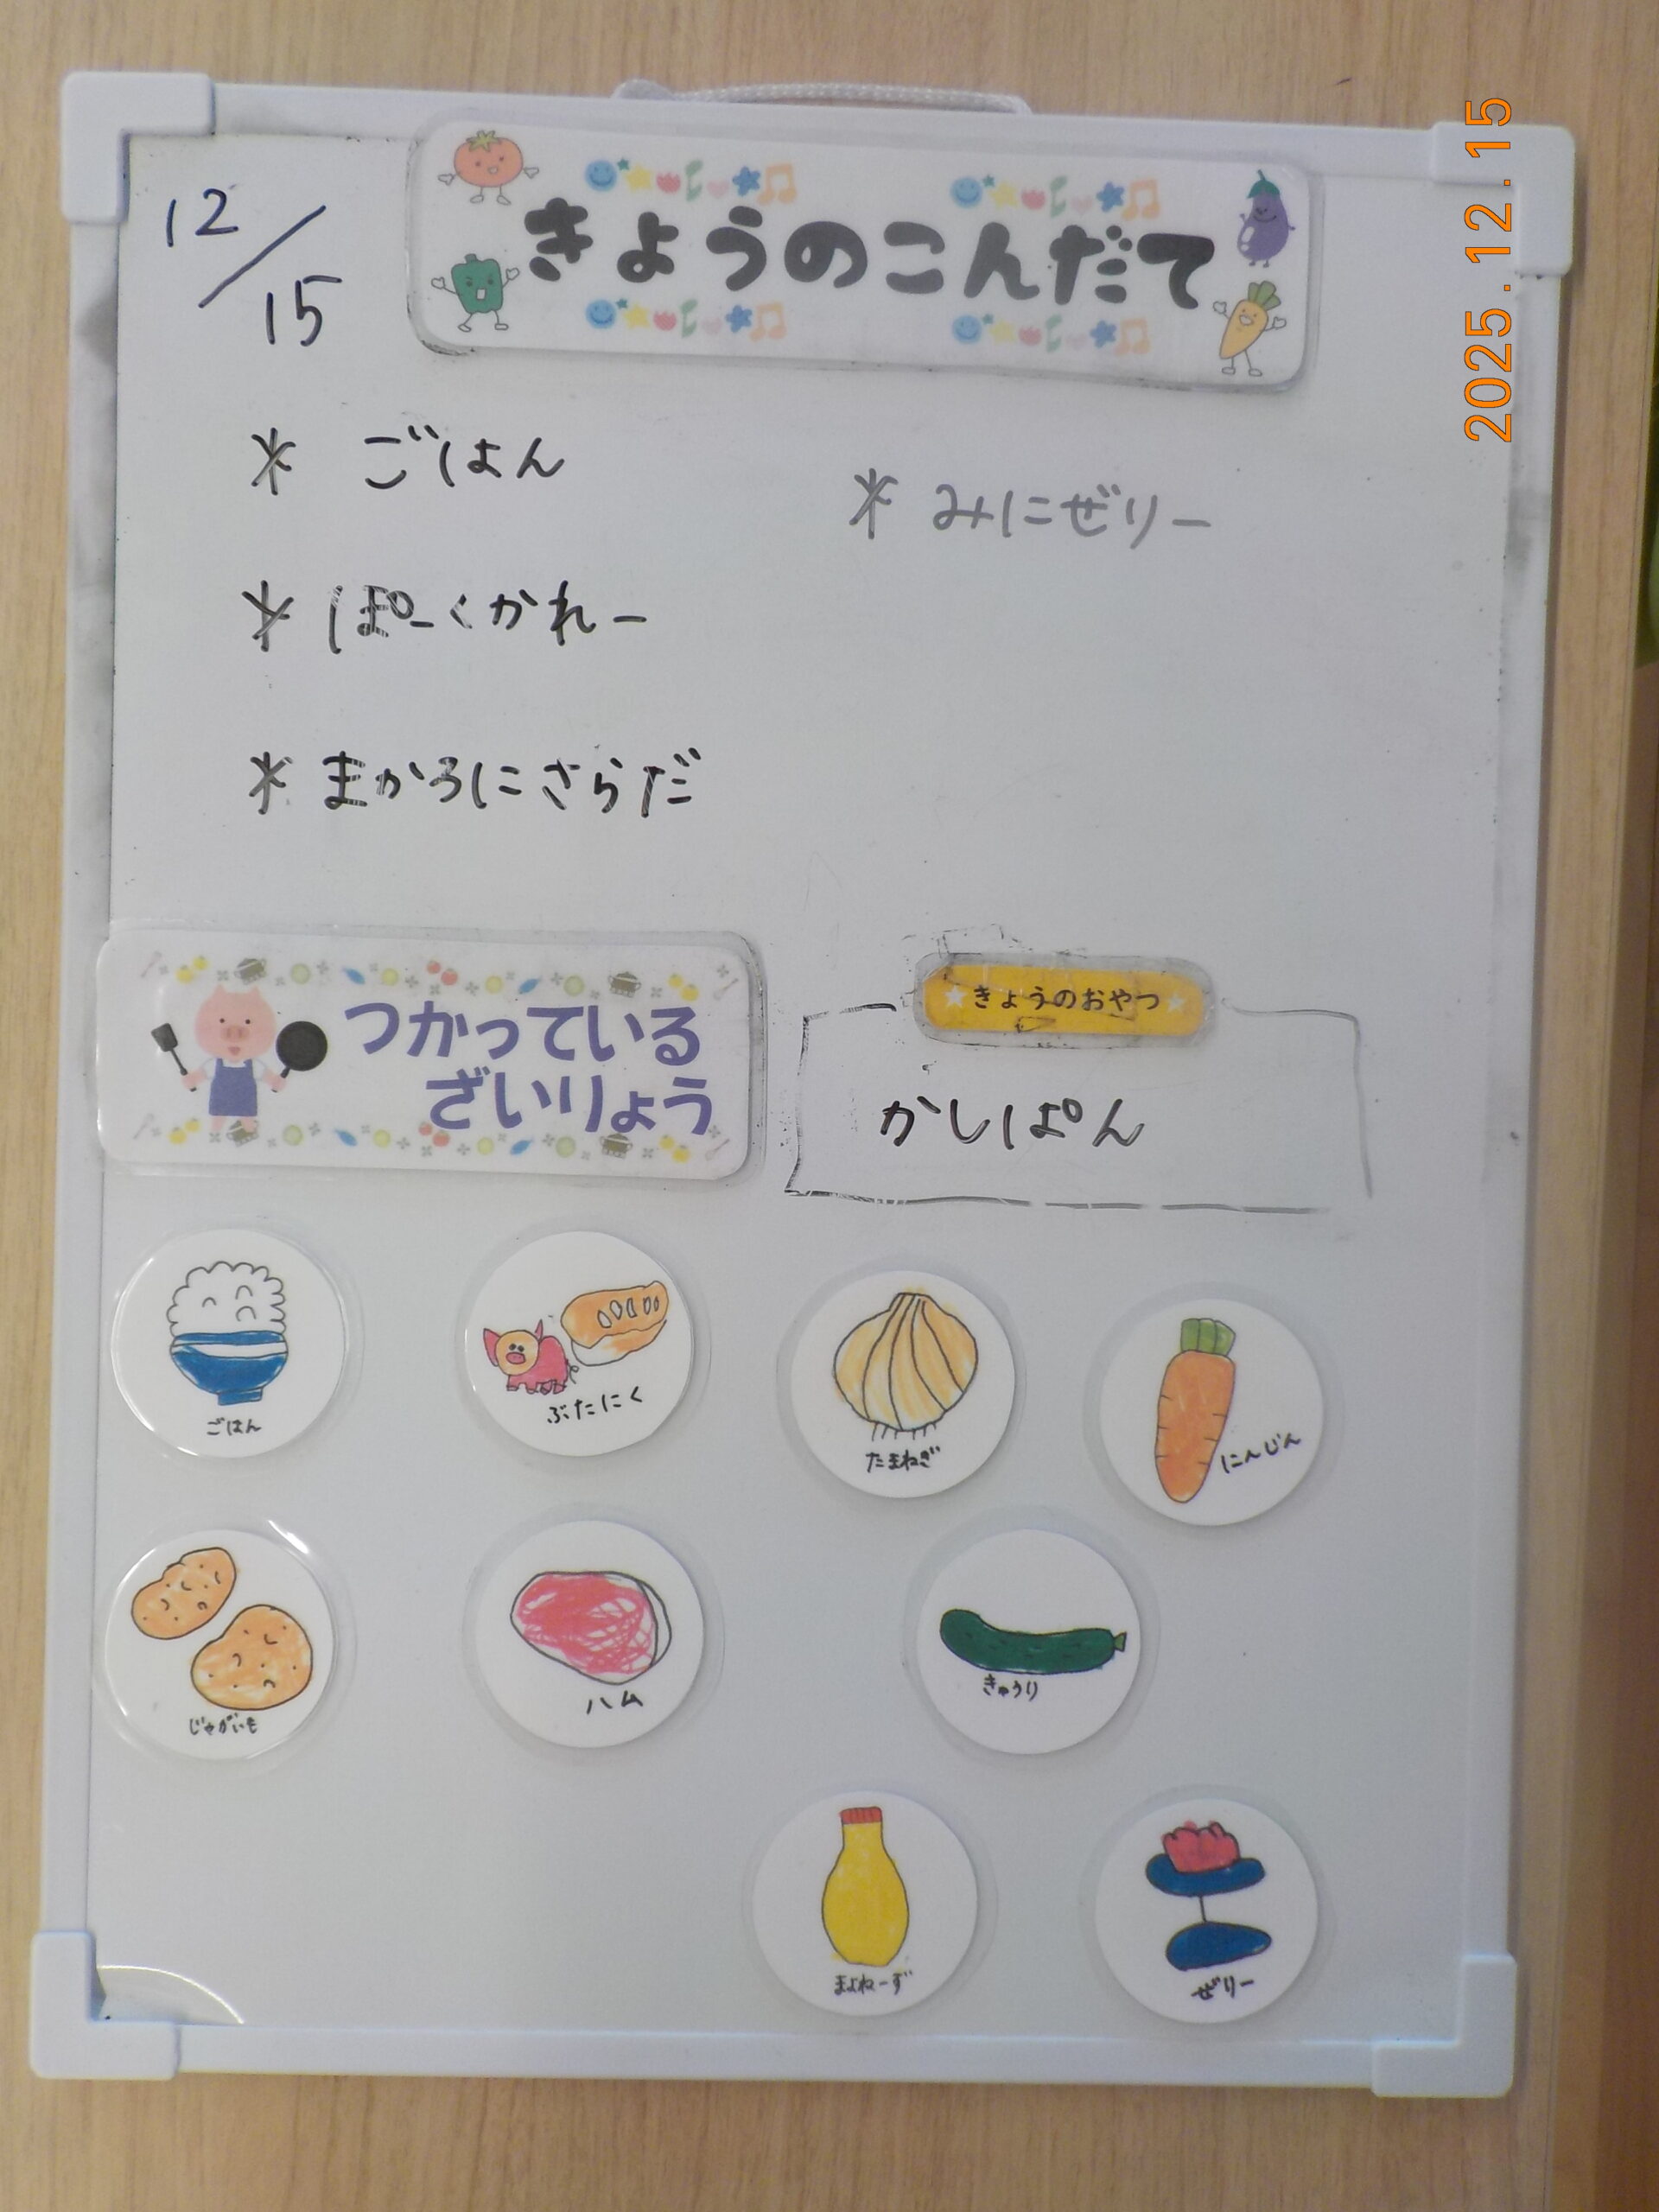 2025.12.15
12/15
きょうのこんだて
* ごはん
* みにぜりー
* ぽーくかれー
* まかろにさらだ
つかっている
ざいりょう
きょうのおやつ
かしぱん
ごはん
ぶたにく
たまねぎ
にんじん
じゃがいも
ハム
きゅうり
まよねーず
ぜりー